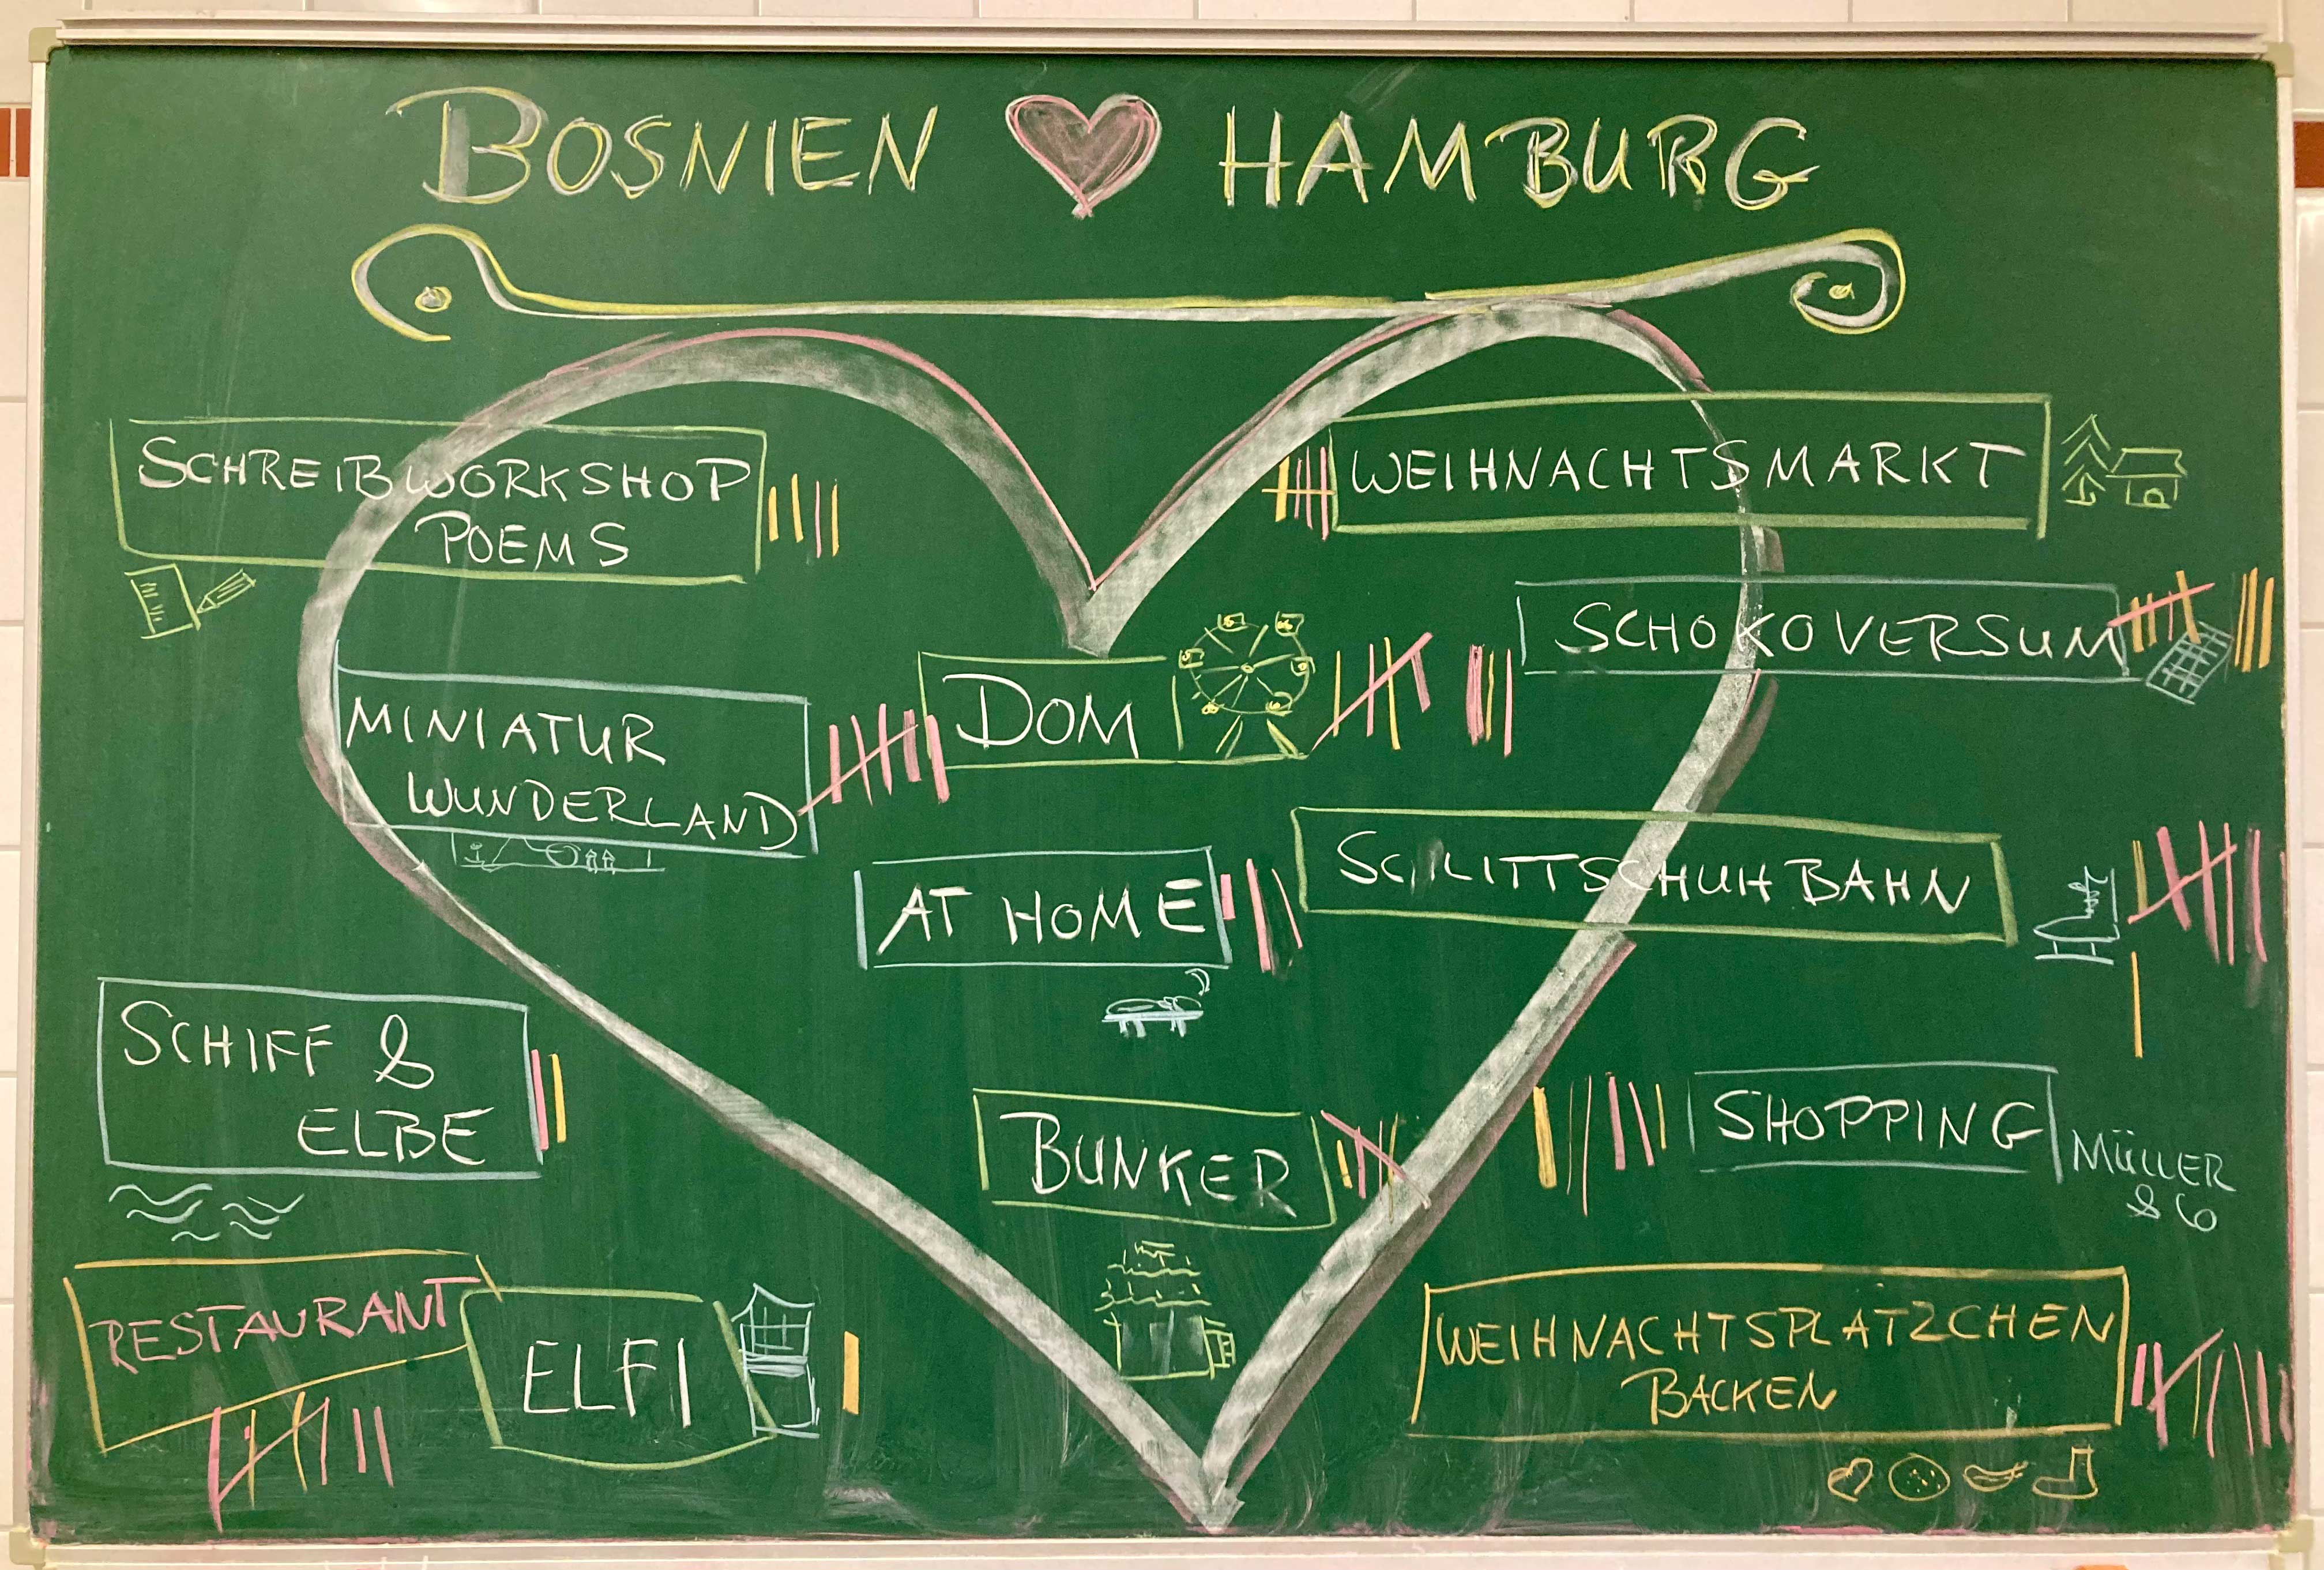 BOSNIEN HAMBURG
SCHREIBWORKSHOP
POEMS
WEIHNACHTSMARKT
SCHOKOVERSUM
MINIATUR
WUNDERLAND
DOM
AT HOME
SCHLITTSCHUHBAHN
SCHIFF &
ELBE
BUNKER
SHOPPING
MÜLLER
& CO
RESTAURANT
ELFI
WEIHNACHTSPLATZCHEN
BACKEN